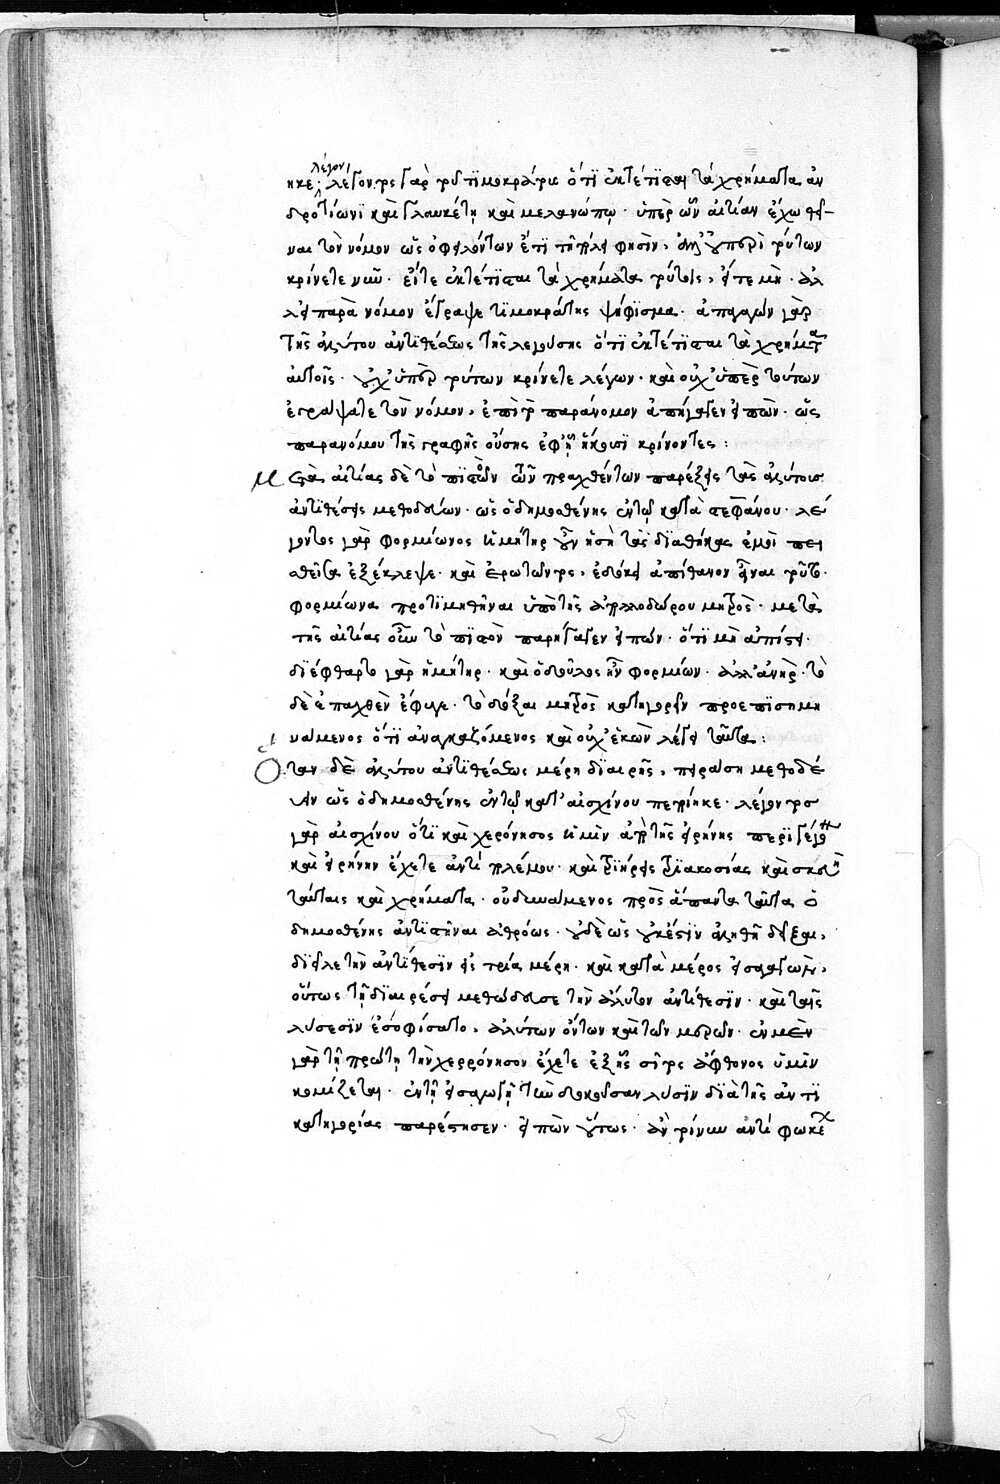 λέγοντος
ηκε· λέγοντος γὰρ τοῦ τιμοκράτους ὅτι ἐκτέτισται τὰ χρήματα ἀν
δροτίωνι καὶ γλαυκέτη καὶ μελανώπω· ὑπὲρ ὧν αἰτίαν ἔχω θεῖ
ναι τὸν νόμον ὡς ὀφειλόντων ἔτι τῆ πόλει φησὶν, οὐχ ὑπὲρ τούτων
κρίνετε νῦν· εἴτε ἐκτέτισται τὰ χρήματα τούτοις, εἴτε μὴ· ἀλ
λ' εἰ παρὰ νόμον ἔγραψε τιμοκράτης ψήφισμα· ἀπαγαγὼν γὰρ
τῆς ἀλύτου ἀντιθέσεως τῆς λεγούσης ὅτι ἐκτέτισται τὰ χρήματα
αὐτοῖς· οὐχ ὑπὲρ τούτων κρίνετε λέγων· καὶ οὐχ ὑπὲρ τούτων
ἐγράψατε τὸν νόμον, ἐπὶ τὸ παράνομον ἀπήγαγεν εἰπὼν· ὡς
παρανόμου τῆς γραφῆς οὔσης ἐφ' ἧ ἥκουσι κρίνοντες:
Μετὰ αἰτίας δὲ τὸ πιστὸν τῶν πραχθέντων παρέξεις τὰς ἀλύτους
ἀντιθέσεις μεθοδεύων· ὡς ὁ δημοσθένης ἐν τῶ κατὰ στεφάνου· λέ
γοντος γὰρ φορμίωνος ἡ μήτηρ οὖν ἡ σὴ τὰς διαθήκας ἐμοὶ πει
σθεῖσα ἐξέκλεψε· καὶ ἐρωτῶντος, ἐδόκει ἀπίθανον εἶναι τοῦτο·
φορμίωνα προτιμηθῆναι ὑπὸ τῆς ἀπολλοδώρου μητρὸς· μετὰ
τῆς αἰτίας οὖν τὸ πιστὸν παρήγαγεν εἰπών· ὅτι μὴ ἀπίστει·
διέφθαρτο γὰρ ἡ μήτηρ· καὶ ὁ δοῦλος ἦν φορμίων· ἀλλ' ἀνὴρ· τὸ
δὲ ἐπαχθὲν ἔφυγε· τὸ δόξαι μητρὸς κατηγορεῖν προεπισημη
νάμενος ὅτι ἀναγκαζόμενος καὶ οὐχ ἑκὼν λέγει ταῦτα:
Ὅταν δὲ ἀλύτου ἀντιθέσεως μέρη διαιρῆς, πειράση μεθοδεύ
ειν ὡς ὁ δημοσθένης ἐν τῶ κατ' αἰσχίνου πεποίηκε· λέγοντος
γὰρ αἰσχίνου ὅτι καὶ χερόνησος ἡμῖν ἀπὸ τῆς εἰρήνης περιγέγονε
καὶ εἰρήνην ἔχετε ἀντὶ πολέμου· καὶ τριήρεις τριακοσίας καὶ σκεύη
ταύταις καὶ χρήματα· οὐ δυνάμενος πρὸς ἅπαντα ταῦτα ὁ
δημοσθένης ἀντιστῆναι ἀθρόως· οὐδὲ ὡς οὐκ ἔστιν ἀληθῆ δεῖξαι,
διεῖλε τὴν ἀντίθεσιν εἰς τρία μέρη· καὶ κατὰ μέρος εἰσαγαγὼν,
οὕτως τῆ διαιρέσει μεθώδευσε τὴν ἄλυτον ἀντίθεσιν· καὶ ταῖς
λύσεσιν ἐσοφίσατο, ἀλύτων ὄντων καὶ τῶν μερῶν· ἐν μὲν
γὰρ τῆ πρώτη τὴν χερρόνησον ἔχετε ἐξ ἧς σῖτος ἄφθονος ὑμῖν
κομίζεται· ἐν τῆ εἰσαγωγῆ τὴν δοκοῦσαν λύσιν διὰ τῆς ἀντι
κατηγορίας παρέστησεν· εἰπὼν οὕτως· ἂν τοίνυν ἀντὶ φωκέ